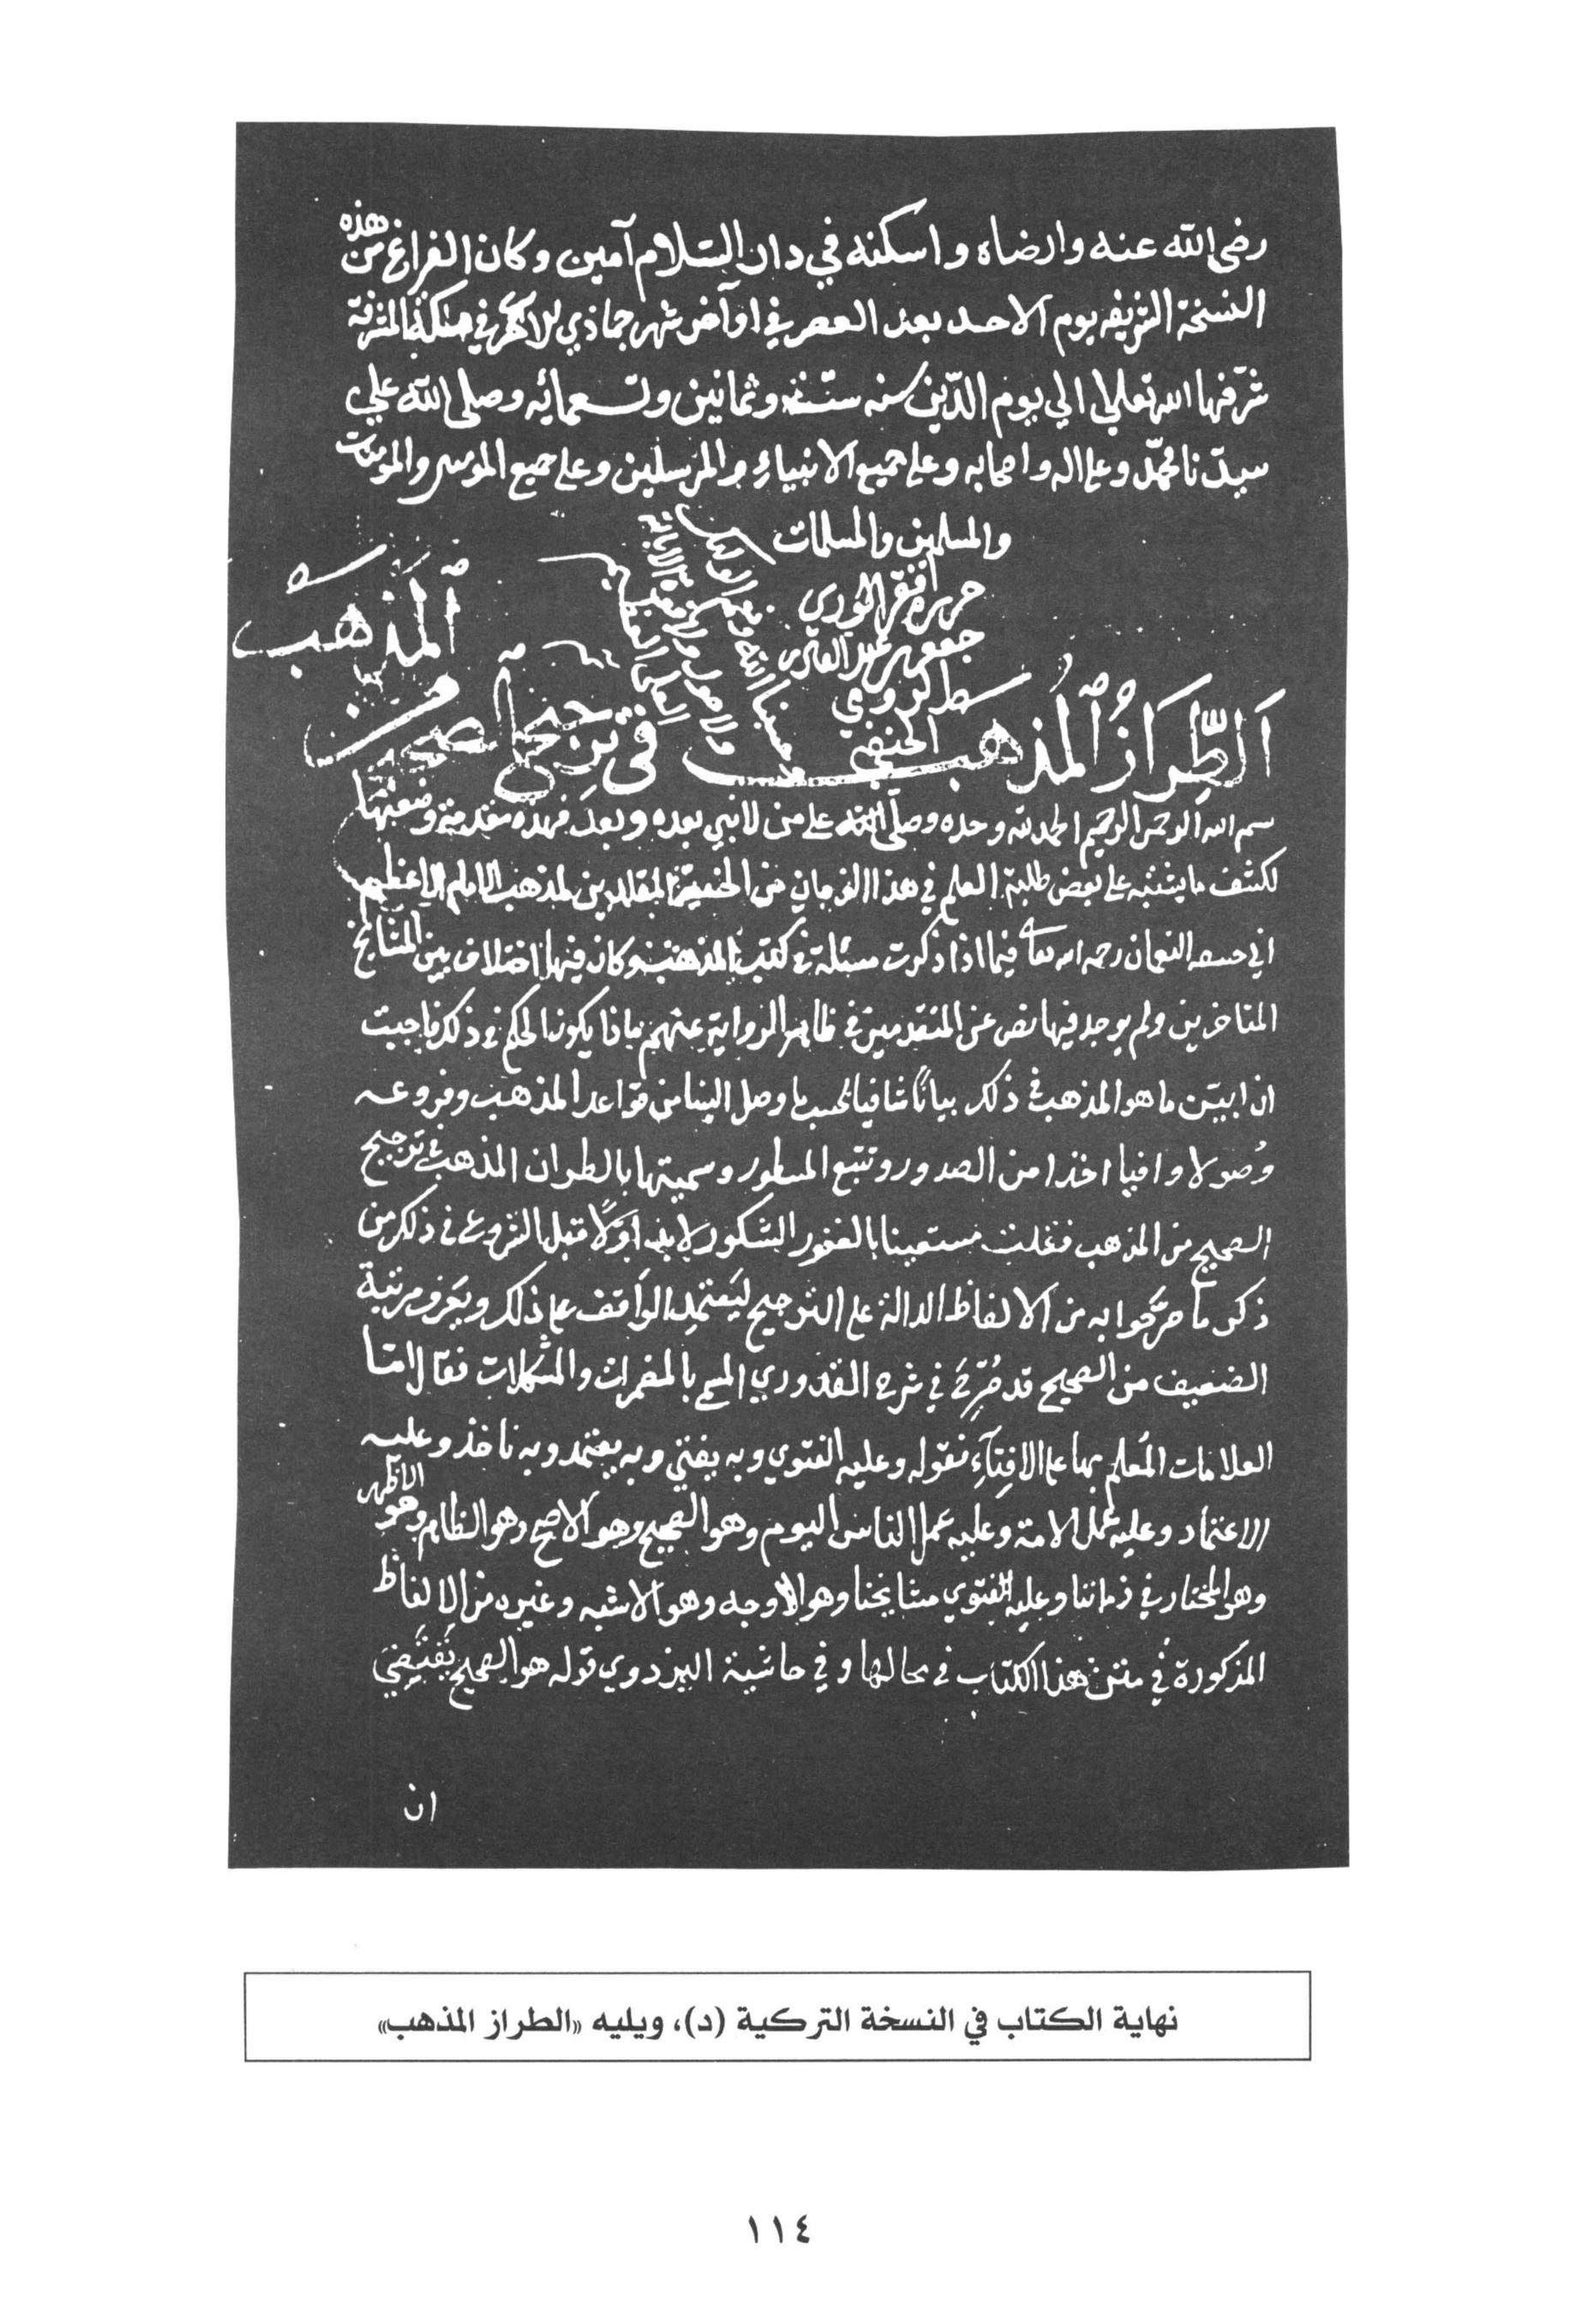 رضى الله عنه وارضاه واسكنه في دار السلام آمين وكان الفراغ من هذه
النسخة الشريفه يوم الاحد بعد العصر في اوآخر شهر جماذي الاخر في مكة المشرفة
شرّفها الله تعالي الي يوم الدّين سنه ستة وثمانين وتسعمائه وصلى الله علي
سيدنا محمّد وعلى اله واصحابه وعلى جميع الانبياء والمرسلين وعلى جميع المومنين والمومنات
والمسلمين والمسلمات
حرره افقر الورى
جعفر بن عبد
الرومي
الحنفي
اَلطِّرَازُ الْمُذهَب فى ترجيح الصحيح من
الْمَذهَب
بسم الله الرحمن الرحيم الحمد لله وحده وصلّى الله على من لا نبي بعده وبعد فهذه مقدمة وضعتها
لكشف ما يشتبه على بعض طلبة العلم في هذا الزمان من الحنفية المقلدين لمذهب الامام الاعظم
ابي حنيفه النعمان رحمه الله تعا فيما اذا ذكرت مسئلة في كتب المذهب وكان فيها اختلاف بين المشايخ
المتاخرين ولم يوجد فيها نص عن المتقدمين في ظاهر الرواية عنهم ماذا يكون الحكم في ذلك فاحببت
ان ابيّن ما هو المذهب في ذلك بيانًا شافيا بحسب ما وصل الينا من قواعد المذهب وفروعه
وصولا وافيا اخذا من الصدور وتتبع المسطور وسميتها بالطراز المذهب في ترجيح
الصحيح من المذهب فقلت مستعينا بالغفور الشكور لا بد اوّلًا قبل الشروع في ذلك من
ذكر ما صرّحوا به من الالفاظ الدالة على الترجيح ليعتمد الواقف على ذلك ويعرف مرتبة
الضعيف من الصحيح قد صُرّح في شرح القدوري المسمى بالمضمرات والمشكلات فقال امّا
العلامات المُعلم بها على الافتآء فقوله وعليه الفتوى وبه يفتى وبه يعتمد وبه ناخذ وعليه
الاعتماد وعليه عمل الامة وعليه عمل الناس اليوم وهو الصحيح وهو الاصح وهو الظاهر وهو الاظهر
وهو المختار في زماننا وعليه الفتوي مشايخنا وهو الاوجه وهو الاشبه وغيره من الالفاظ
المذكورة في متن هذا الكتاب في محالها وفي حاشية البزدوي قوله هو الصحيح يقتضي
ان
نهاية الكتاب في النسخة التركية (د)، ويليه «الطراز المذهب»
١١٤